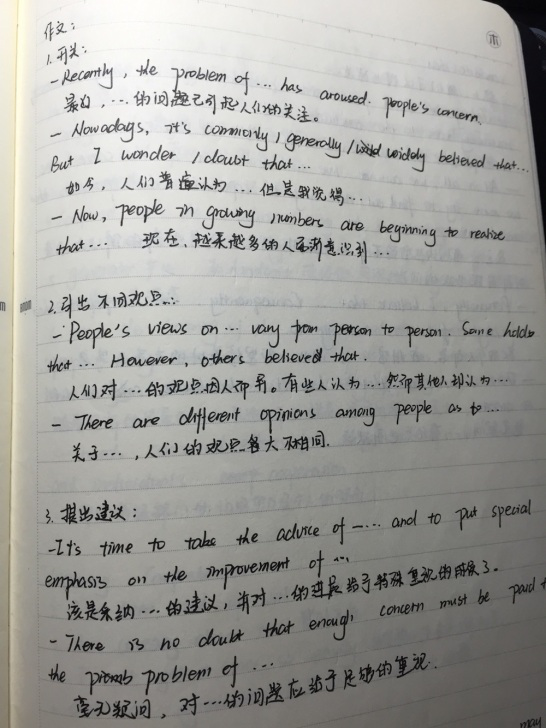 作文:
1.开头:
- Recently, the problem of ... has aroused. people's concern.
最近, ... 的问题已引起人们的关注。
- Nowadays, it's commonly / generally / widely believed that...
But I wonder / doubt that ...
如今, 人们普遍认为 ... 但是我怀疑 ...
- Now, people in growing numbers are beginning to realize
that ... 现在, 越来越多的人逐渐意识到 ...
2.引出不同观点:
- People's views on ... vary from person to person. Some holds
that ... However, others believed that.
人们对 ... 的观点因人而异。有些人认为 ... 然而其他人却认为 ...
- There are different opinions among people as to ...
关于 ... , 人们的观点各大不相同.
3.提出建议:
- It's time to take the advice of ... and to put special
emphasis on the improvement of ...
该是采纳 ... 的建议, 并对 ... 的进展给予特殊重视的时候了。
- There is no doubt that enough concern must be paid t
the problem of ...
毫无疑问, 对 ... 的问题应给予足够的重视.
may